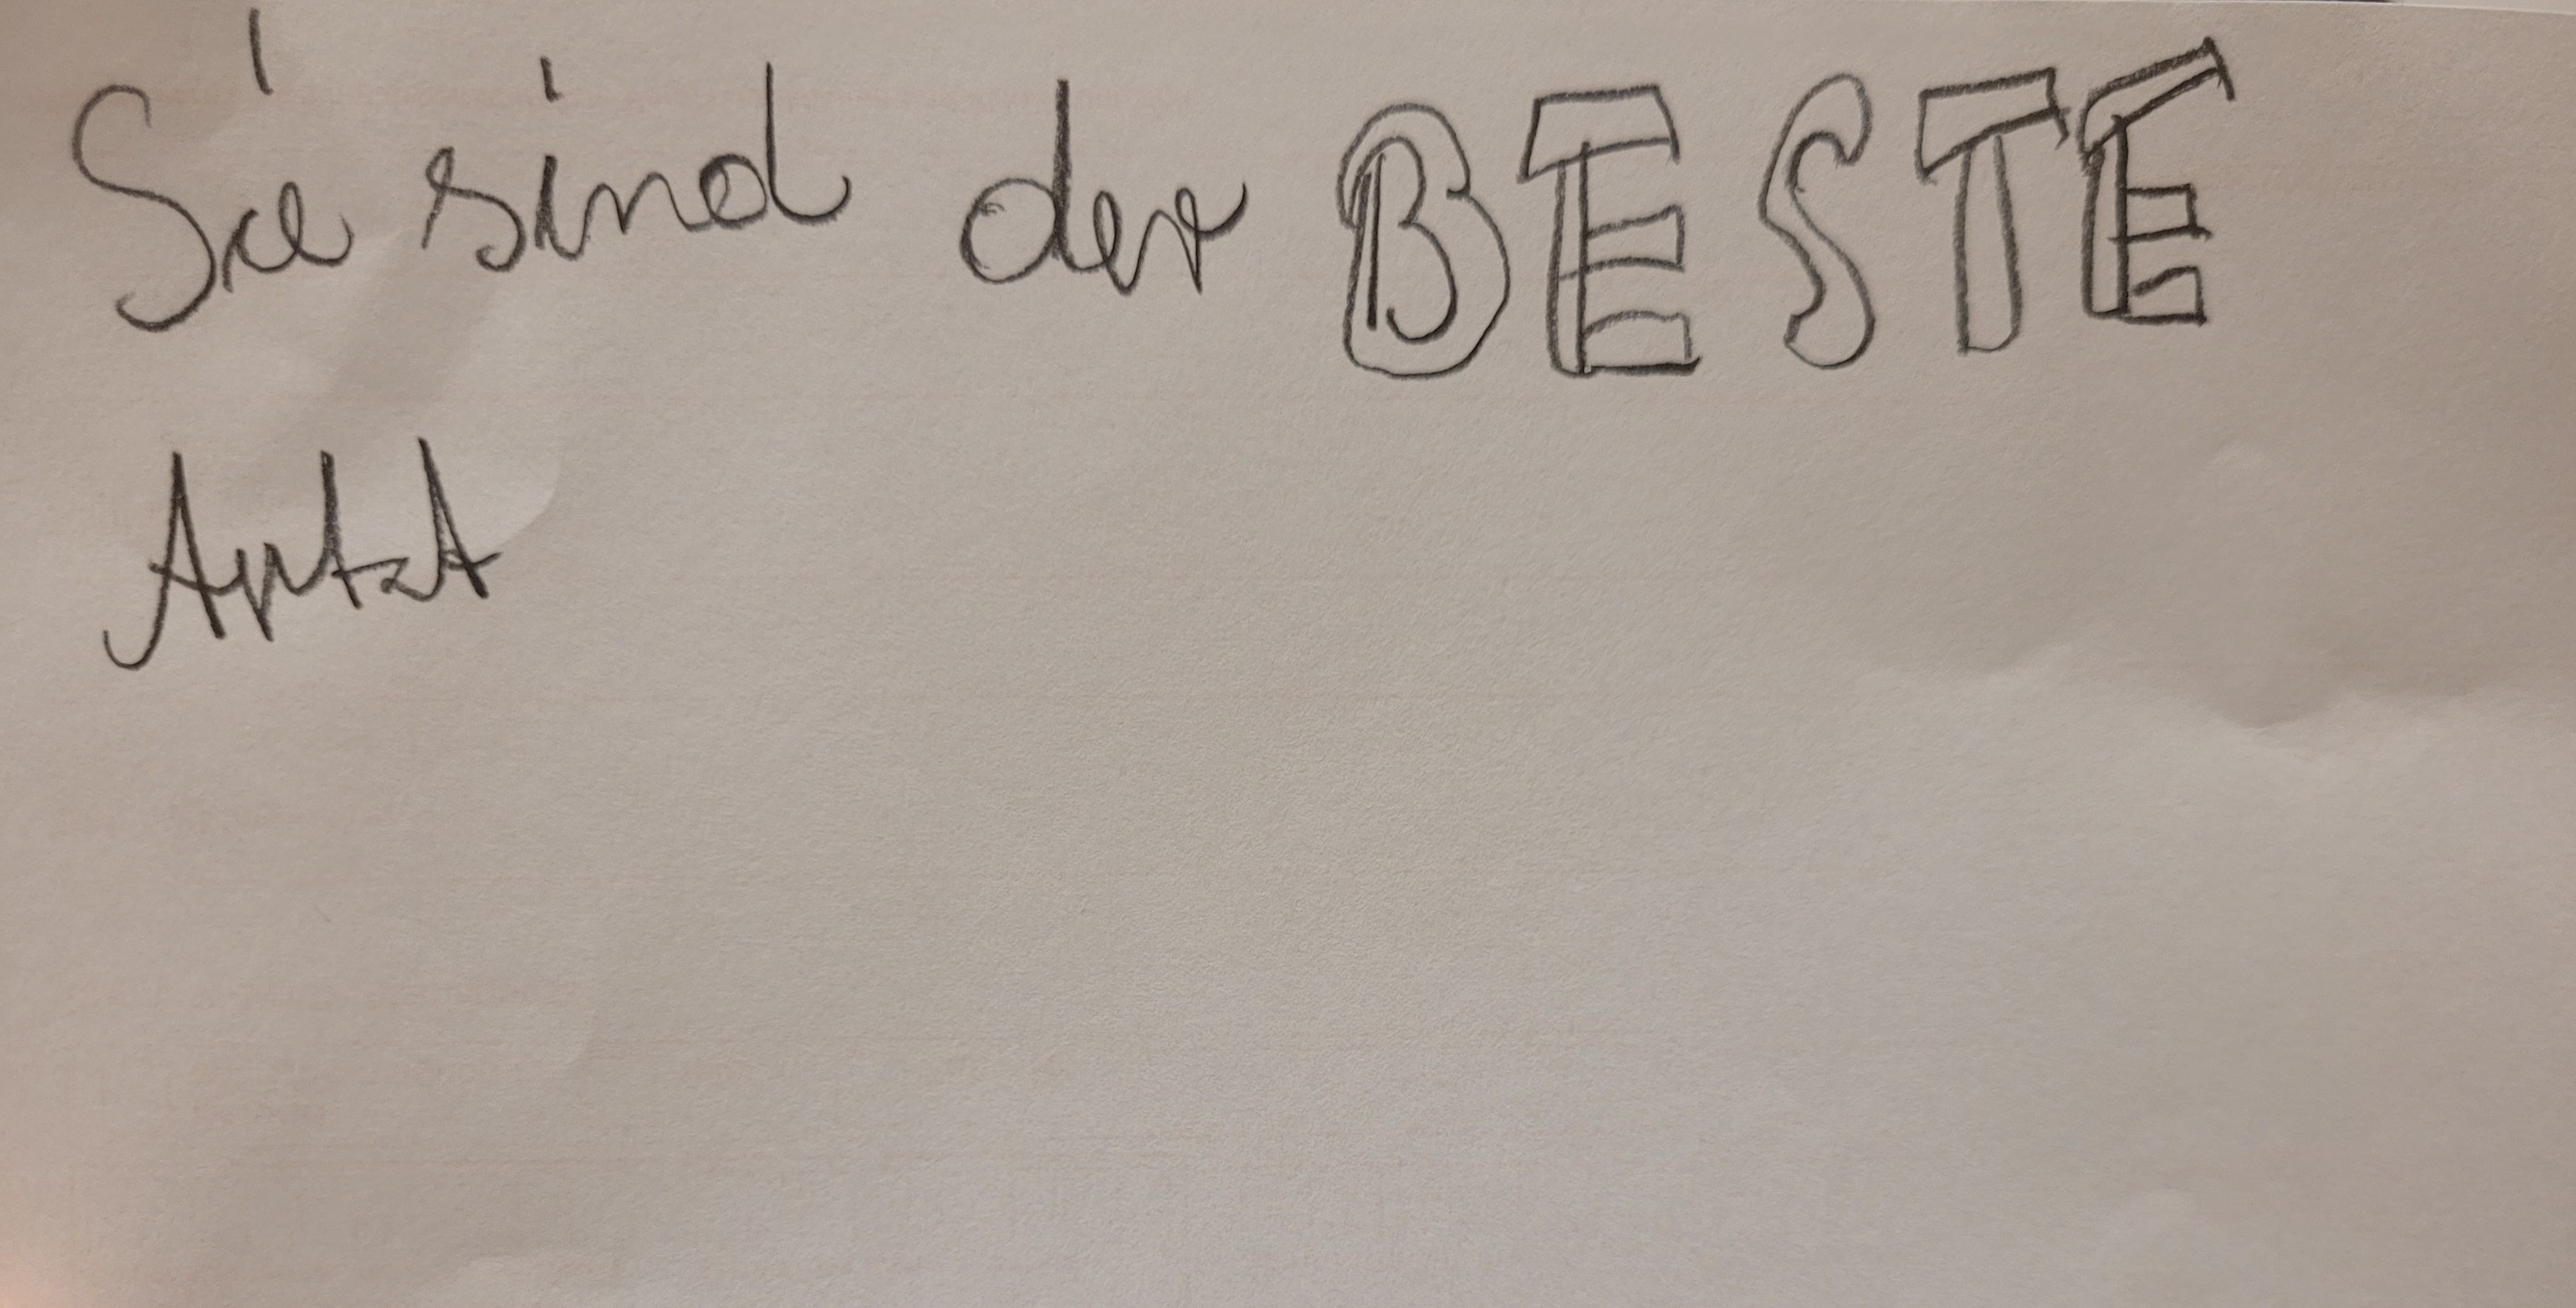 Sie sind der BESTE
Artzt